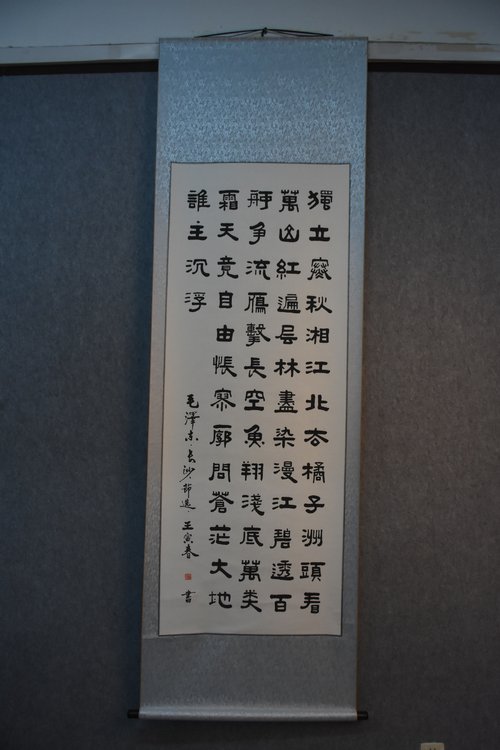 獨立寒秋湘江北去橘子洲頭看
萬山紅遍层林盡染漫江碧透百
舸争流鷹擊長空魚翔淺底萬类
霜天竞自由悵寥廓問蒼茫大地
誰主沉浮
毛澤东·長沙·節選 壬寅春 書